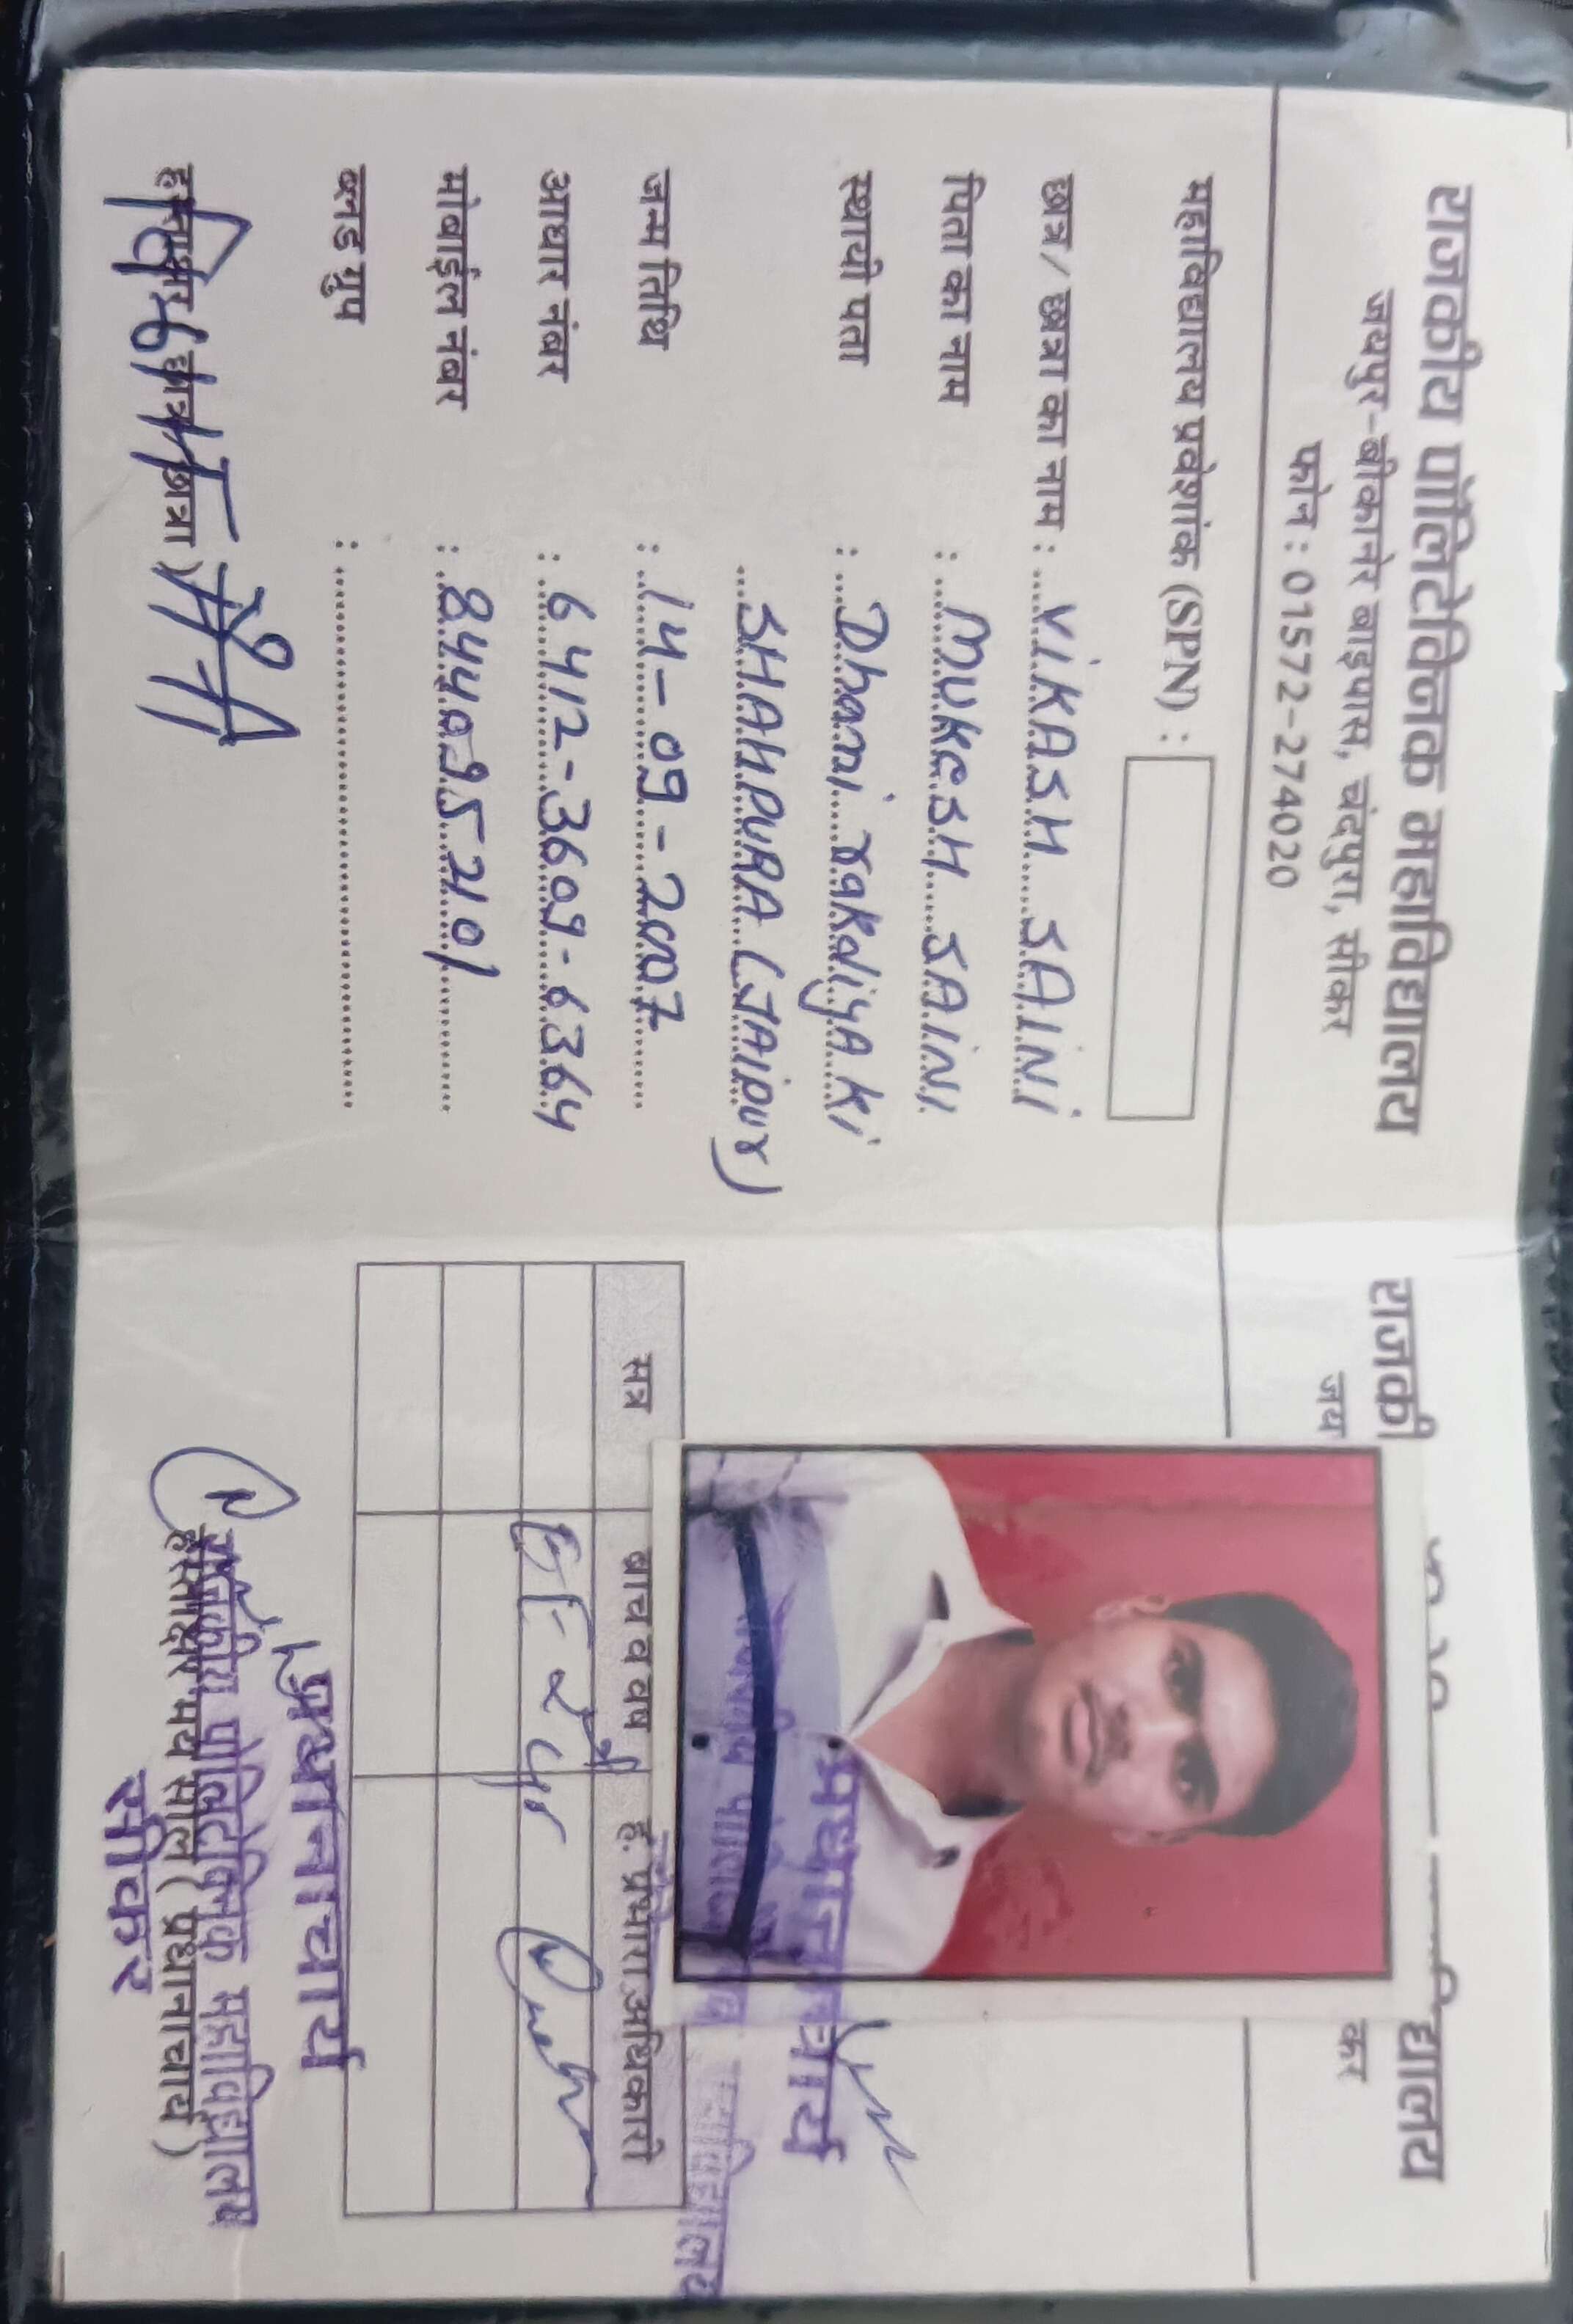 राजकीय पॉलिटेक्निक महाविद्यालय
जयपुर-बीकानेर बाइपास, चंदपुरा, सीकर
फोन : 01572-274020
महाविद्यालय प्रवेशांक (SPN) :
छात्र / छात्रा का नाम : VIKASH SAINI
पिता का नाम : MUKESH SAINI
स्थायी पता : Dhani rakdiya ki
SHAHPURA (JAIPUR)
जन्म तिथि : 14-09-2007
आधार नंबर : 6412-3609-6364
मोबाईल नंबर :
ब्लड ग्रुप :
हस्ताक्षर ( छात्र / छात्रा )
राजकी द्यालय
जय कर
प्रधानाचार्य
सत्र ब्रांच व वर्ष ह. प्रभारी अधिकारी
EE
प्रधानाचार्य
राजकीय पोलिटेक्निक महाविद्यालय
हस्ताक्षर मय सील ( प्रधानाचार्य )
सीकर